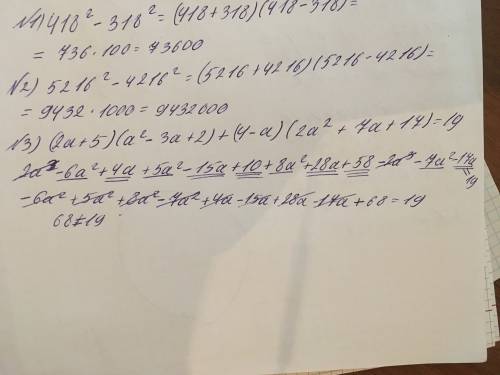 №1) 418² - 318² = (418+318)(418-318)=
= 736 · 100 = 73600
№2) 5216² - 4216² = (5216+4216)(5216-4216)=
= 9432 · 1000 = 9432000
№3) (2a+5)(a² - 3a+2) + (4-a)(2a² + 7a + 17) = 19
2a³ - 6a² + 4a + 5a² - 15a + 10 + 8a² + 28a + 58 - 2a³ - 7a² - 17a
= 19
- 6a² + 5a² + 8a² - 7a² + 4a - 15a + 28a - 17a + 68 = 19
68 ≠ 19